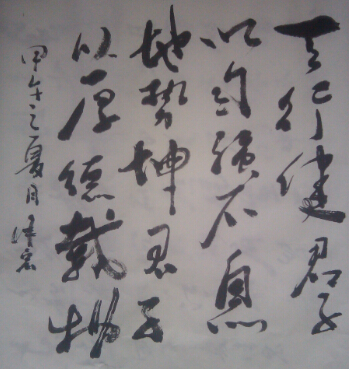 天行健君子
以自强不息
地势坤君子
以厚德载物
甲午之夏月